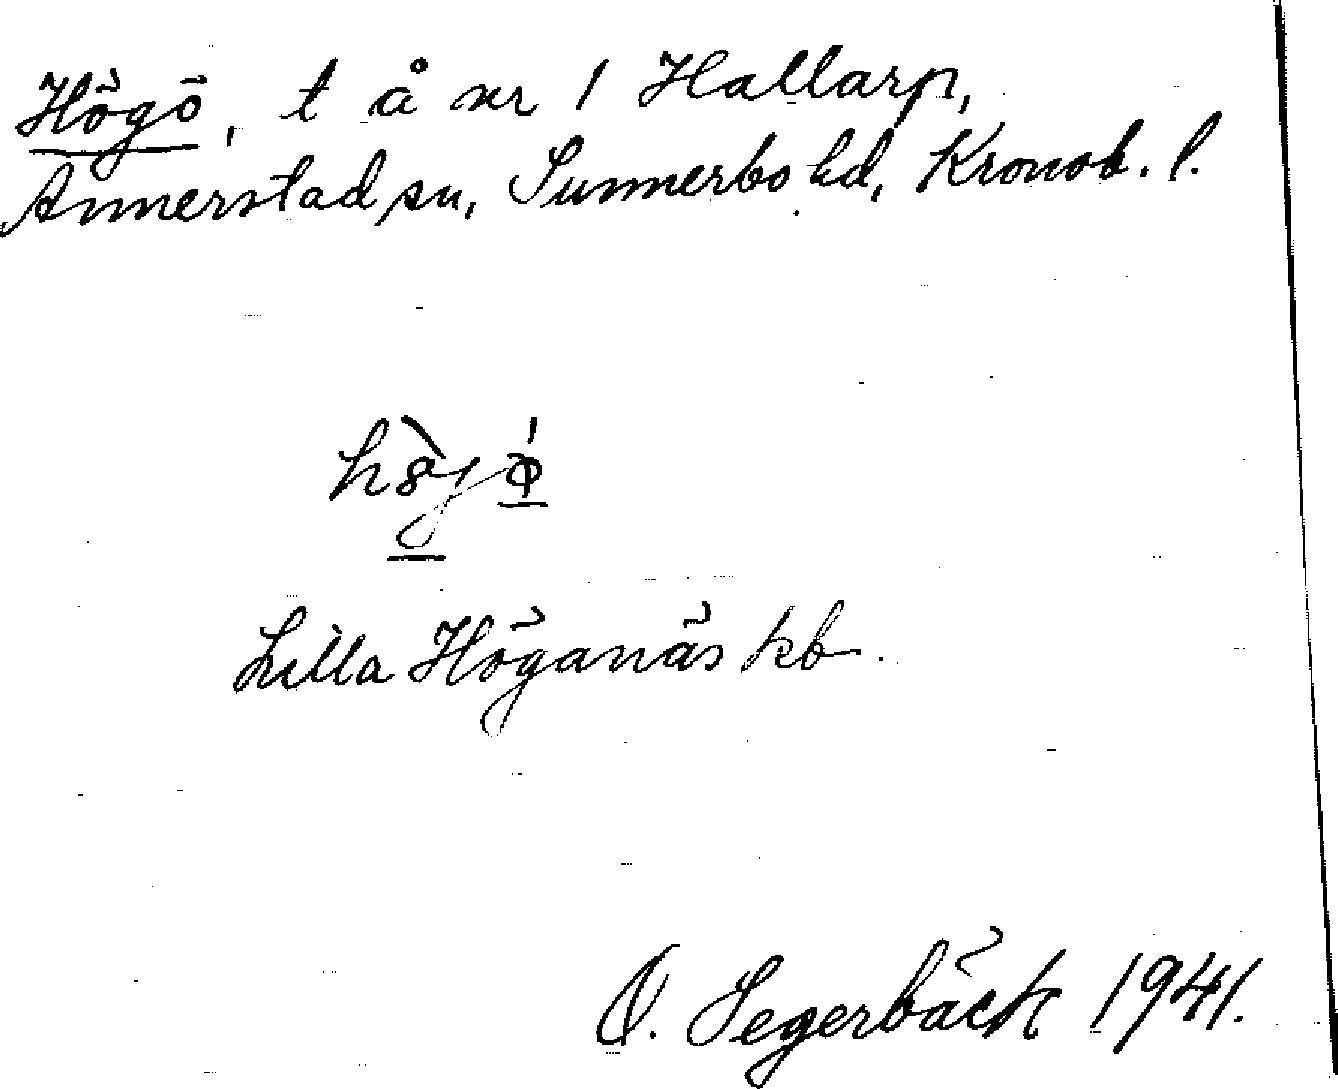 Högö, t å nr 1 Hallarp,
Annerstad sn, Sunnerbo hd, Kronob. l.
Lilla Höganäs kb.
O. Segerbäck 1941.